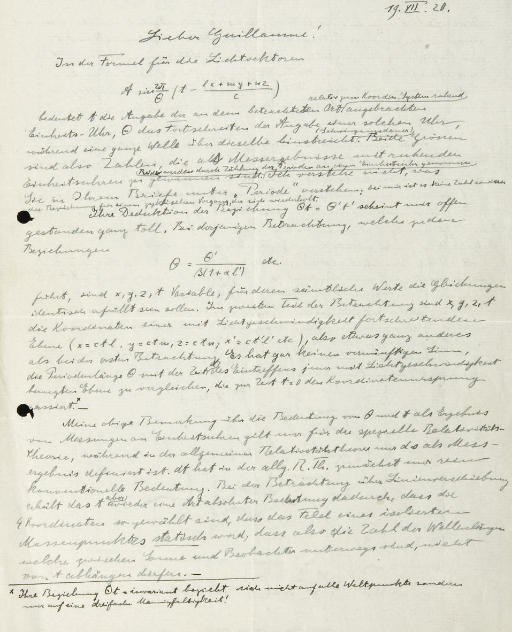 19. VII. 20.
Lieber Guillaume!
In der Formel für die Lichtvektoren
A sin 2π/Θ (t - (lx + my + nz)/c)
relativ zum Koordin. System ruhend
bedeutet t die Angabe der an dem betrachteten Ort angebrachten
Einheits-Uhr, Θ das Fortschreiten der Angabe einer solchen Uhr,
während eine ganze Welle über dieselbe hinstreicht. Beide Grössen
sind also Zahlen, die als Messergebnisse mit ruhenden
Einheitsuhren gewonnen sind. Ich verstehe nicht, was
Sie in Ihrem Briefe unter "Periode" verstehen,
Ihre Deduktion der Beziehung Θt = Θ't' scheint mir offen
gestanden ganz toll. Bei derjenigen Betrachtung, welche zu den
Beziehungen
Θ = Θ'/β(1+αl') etc.
führt, sind x, y, z, t Variable, für deren sämtliche Werte die Gleichungen
identisch erfüllt sein sollen. Im zweiten Teil der Betrachtung sind x, y, z, t
die Koordinaten einer mit Lichtgeschwindigkeit fortschreitenden
Ebene (x = ctl, y = ctm, z = ctn; x' = ct'l' etc), also etwas ganz anderes
als bei der ersten Betrachtung. Es hat gar keinen vernünftigen Sinn,
die Periodenlänge Θ mit der Zeit des Eintreffens jener mit Lichtgeschwindigkeit
bewegten Ebene zu vergleichen, die zur Zeit t=0 den Koordinatenursprung
passiert.* —
Meine obige Bemerkung über die Bedeutung von Θ und t als Ergebnis
von Messungen an Einheitsuhren gilt nur für die spezielle Relativitäts-
Theorie, während in der allgemeinen Relativitätstheorie nur ds als Mess-
ergebnis definiert ist. dt hat in der allg. R. Th. zunächst nur reine
konventionelle Bedeutung. Bei der Betrachtung über Linienverschiebung
erhält das t aber wieder eine Art absoluter Bedeutung dadurch, dass die
4 Koordinaten so gewählt sind, dass das Feld eines isolierten
Massenpunktes statisch wird, dass also die Zahl der Wellenlängen
welche zwischen Sonne und Beobachter unterwegs sind, nicht
von t abhängen dürfen. —
* Ihre Beziehung Θt = invariant bezieht sich nicht auf alle Weltpunkte sondern
nur auf eine dreifache Mannigfaltigkeit!